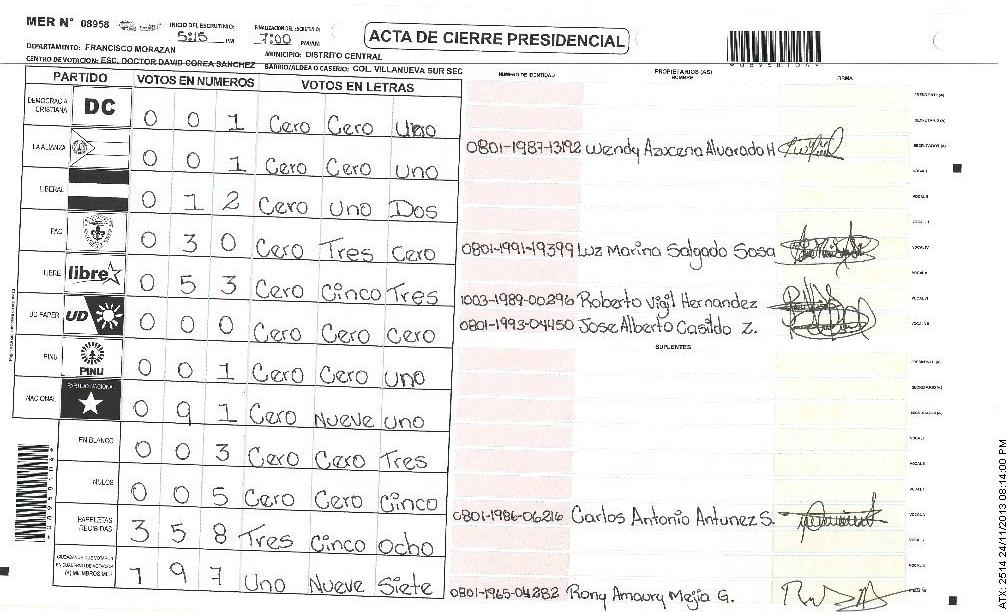 MER N° 08958
INICIO DEL ESCRUTINIO: 5:15 PM
FINALIZACION DEL ESCRUTINIO: 7:00 PM/AM
ACTA DE CIERRE PRESIDENCIAL
DEPARTAMENTO: FRANCISCO MORAZAN
MUNICIPIO: DISTRITO CENTRAL
CENTRO DE VOTACION: ESC. DOCTOR DAVID COREA SANCHEZ
BARRIO/ALDEA O CASERIO: COL. VILLANUEVA SUR SEC
PARTIDO VOTOS EN NUMEROS VOTOS EN LETRAS
NUMERO DE IDENTIDAD PROPIETARIOS (AS) NOMBRE FIRMA
DEMOCRACIA CRISTIANA DC 0 0 1 Cero Cero Uno
LA ALIANZA 0 0 1 Cero Cero Uno
LIBERAL 0 1 2 Cero Uno Dos
PAC 0 3 0 Cero Tres Cero
LIBRE libre 0 5 3 Cero Cinco Tres
UD FAPER UD 0 0 0 Cero Cero Cero
PINU PINU 0 0 1 Cero Cero Uno
NACIONAL PARTIDO NACIONAL 0 9 1 Cero Nueve Uno
EN BLANCO 0 0 3 Cero Cero Tres
NULOS 0 0 5 Cero Cero Cinco
PAPELETAS RECIBIDAS 3 5 8 Tres Cinco Ocho
1 9 7 Uno Nueve Siete
PRESIDENTE (A)
SECRETARIO (A)
0801-1987-13192 Wendy Azucena Alvarado H ESCRUTADOR (A)
VOCAL I
VOCAL II
VOCAL III
0801-1991-19399 Luz Marina Salgado Sosa VOCAL IV
VOCAL V
1003-1989-00296 Roberto Vigil Hernandez VOCAL VI
0801-1993-04450 Jose Alberto Casildo Z. VOCAL VII
SUPLENTES
PRESIDENTE (A)
SECRETARIO (A)
ESCRUTADOR (A)
VOCAL I
VOCAL II
0801-1986-06216 Carlos Antonio Antunez S.
0801-1965-04282 Rony Amaury Mejia G.
ATX 2514 24/11/2013 08:14:00 PM